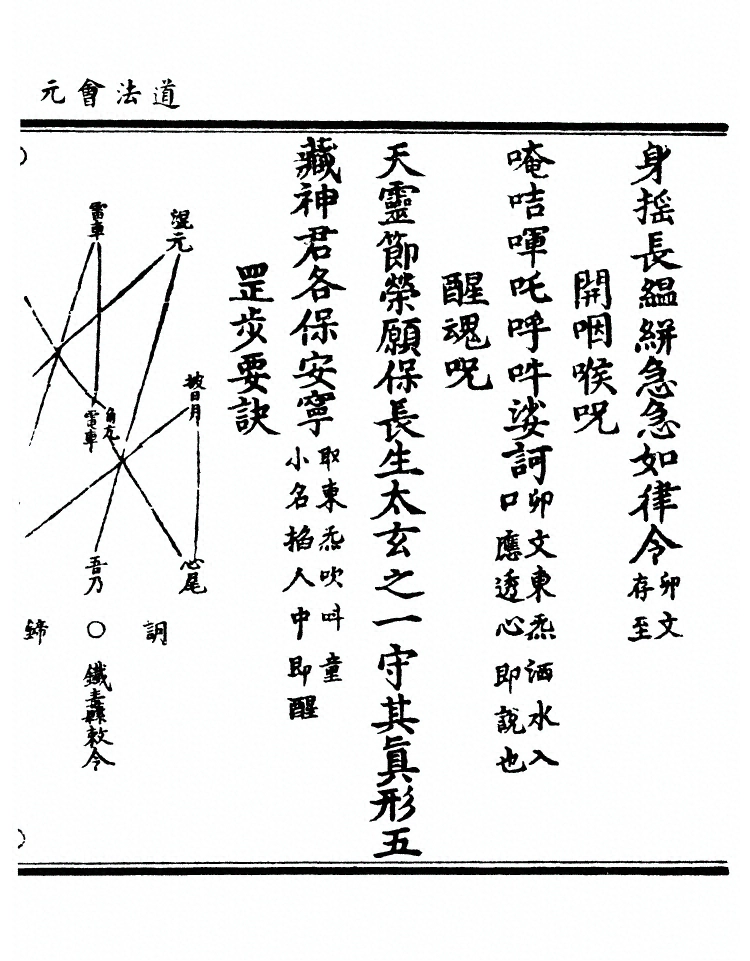 道法會元
身摇長縕絣急急如律令卯文
存至
開咽喉呪
唵咭㖮吒呼吽娑訶卯文東炁洒水入
口應透心即說也
醒魂呪
天靈節榮願保長生太玄之一守其眞形五
藏神君各保安寧取東炁吹呌童
小名掐人中即醒
罡步要訣
混元
雷車
披日月
角亢
雷車
心尾
吾乃
○
鐵
敕令